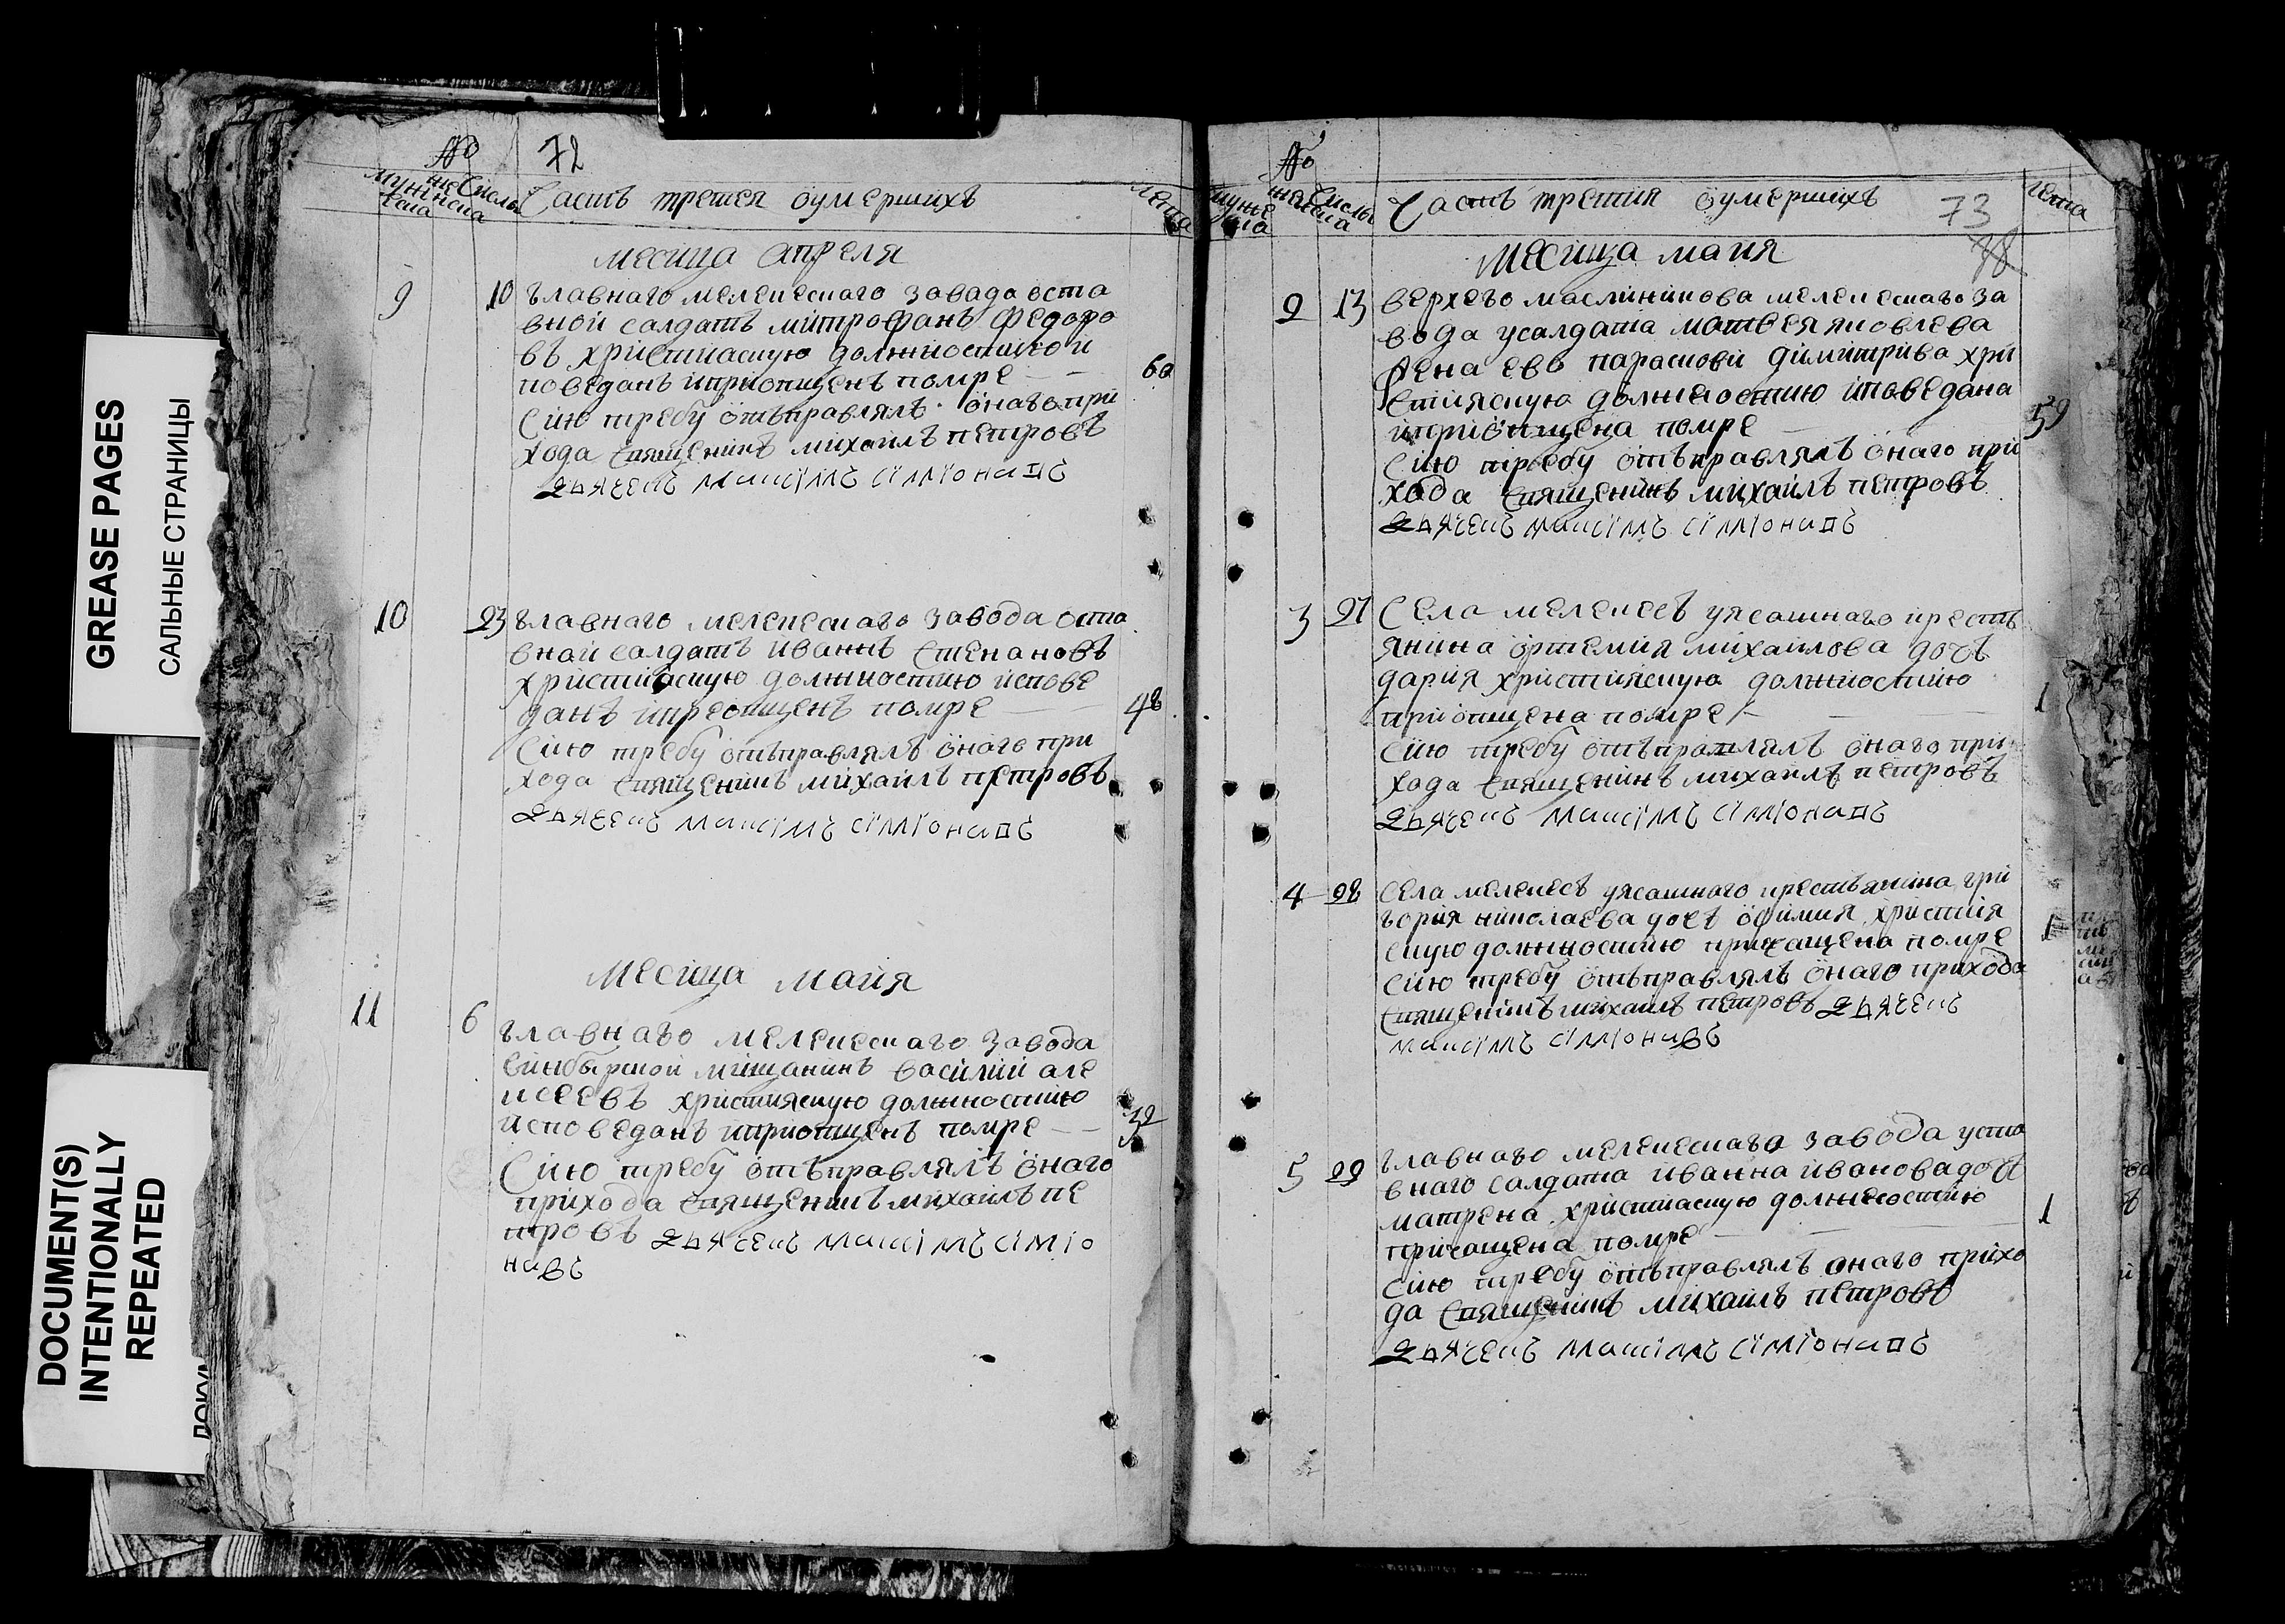 GREASE PAGES
САЛЬНЫЕ СТРАНИЦЫ
DOCUMENT(S)
INTENTIONALLY
REPEATED
№
72
Часть третея оумершихъ
лета
месица апреля
9 10 главнаго мелекескаго завада оста
вной салдатъ митрофанъ федоро
въ христиаскую должностию и
поведанъ иприопщенъ помре 60
Сию требу отъправлялъ онаго при
хода священикъ михаилъ петровъ
максiмъ сiмiонаовъ
10 23 главнаго мелекескаго завода оста
вной салдатъ иваннъ степановъ
христиаскую должностию испове
данъ ипреопщенъ помре 48
Сию требу отъправлялъ онаго при
хода священикъ михаилъ петровъ
максiмъ
Месица маия
11 6 главнаго мелекескаго завода
синбырской мищанинъ василий але
ксеевъ християскую должностию
исповеданъ иприопщенъ помре 32
Сию требу отъправлялъ онаго
прихода священикъ михаилъ пе
тровъ максiмъ сiмiо
№
Числы
Часть третия оумершихъ
73
лета
месица маия
2 13 верхего масленикова мелекескаго за
вода усалдата матвея яковлева
жена ево парасковя димитрива хри
стияскую должностию споведана
иприопщена помре 59
Сию требу отъправлялъ онаго при
хода священикъ михаилъ петровъ
максiмъ
3 27 Села мелекесъ уясашнаго кресть
янина ортемия михаилова дочъ
дария христиияскую должностию
приопщена помре 1
сию требу отъправлялъ онаго при
хода священикъ михаилъ петровъ
максiмъ
4 28 села мелекесъ уясашнаго крестьянина гри
гория николаева дочъ офимия христия
скую должностию причащена помре 1
сию требу отъправлялъ онаго прихода
священикъ михаилъ петровъ
максiмъ
5 29 главнаго мелекескаго завода уота
внаго салдата иванна иванова дочъ
матрена христиаскую должностию 1
причащена помре
сию требу отъправлялъ онаго прихо
да священикъ михаилъ петровъ
максiмъ